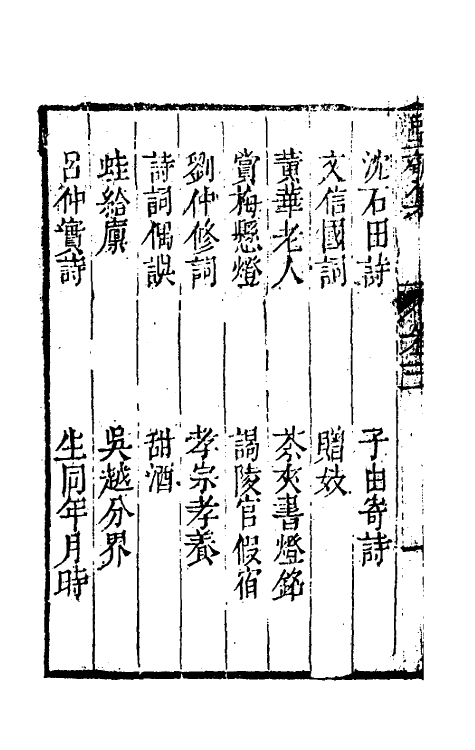 沈石田詩　子由寄詩
文信國詞　贈妓
黃華老人　茶夾書燈銘
賞梅懸燈　謁陵官假宿
劉仲修詞　孝宗孝養
詩詞偶誤　甜酒
蛙給廩　吳越分界
呂仲實詩　生同年月時